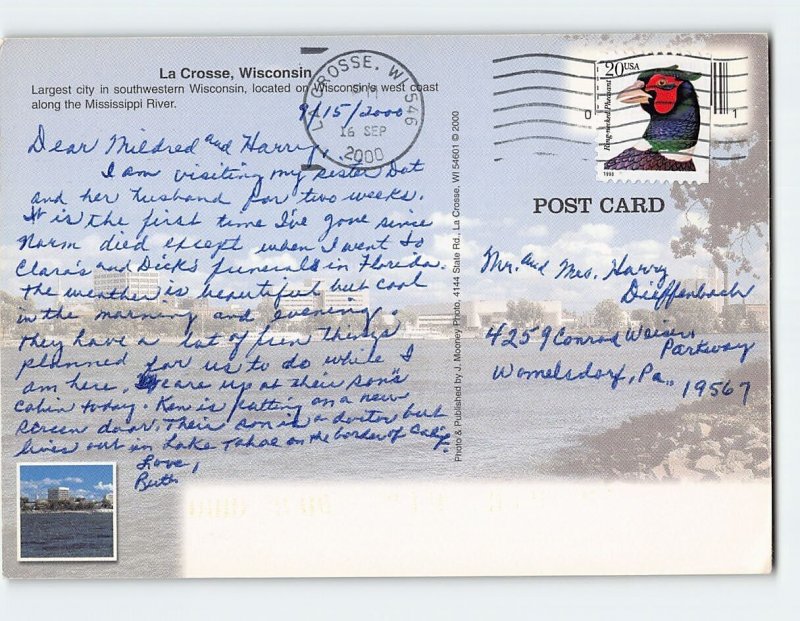 La Crosse, Wisconsin
Largest city in southwestern Wisconsin, located on Wisconsin's west coast
along the Mississippi River.
LA CROSSE, WI 546
16 SEP
2000
20 USA
Ring-necked Pheasant
1998
0
1
POST CARD
9/15/2000
Dear Mildred and Harry,
I am visiting my sister Dot
and her husband for two weeks.
It is the first time I've gone since
Norm died except when I went to
Clara's and Dick's funerals in Florida.
The weather is beautiful but cool
in the morning and evening.
They have a lot of fun things
planned for us to do while I
am here. We are up at their son's
cabin today. Ken is putting on a new
screen door. Their son is a doctor but
lives out in Lake Tahoe on the border of Calif.
Love,
Mr. and Mrs. Harry
Dieffenbach
4259 Conrad Weiser
Parkway
Womelsdorf, Pa.
19567
Photo & Published by J. Mooney Photo, 4144 State Rd., La Crosse, WI 54601 © 2000